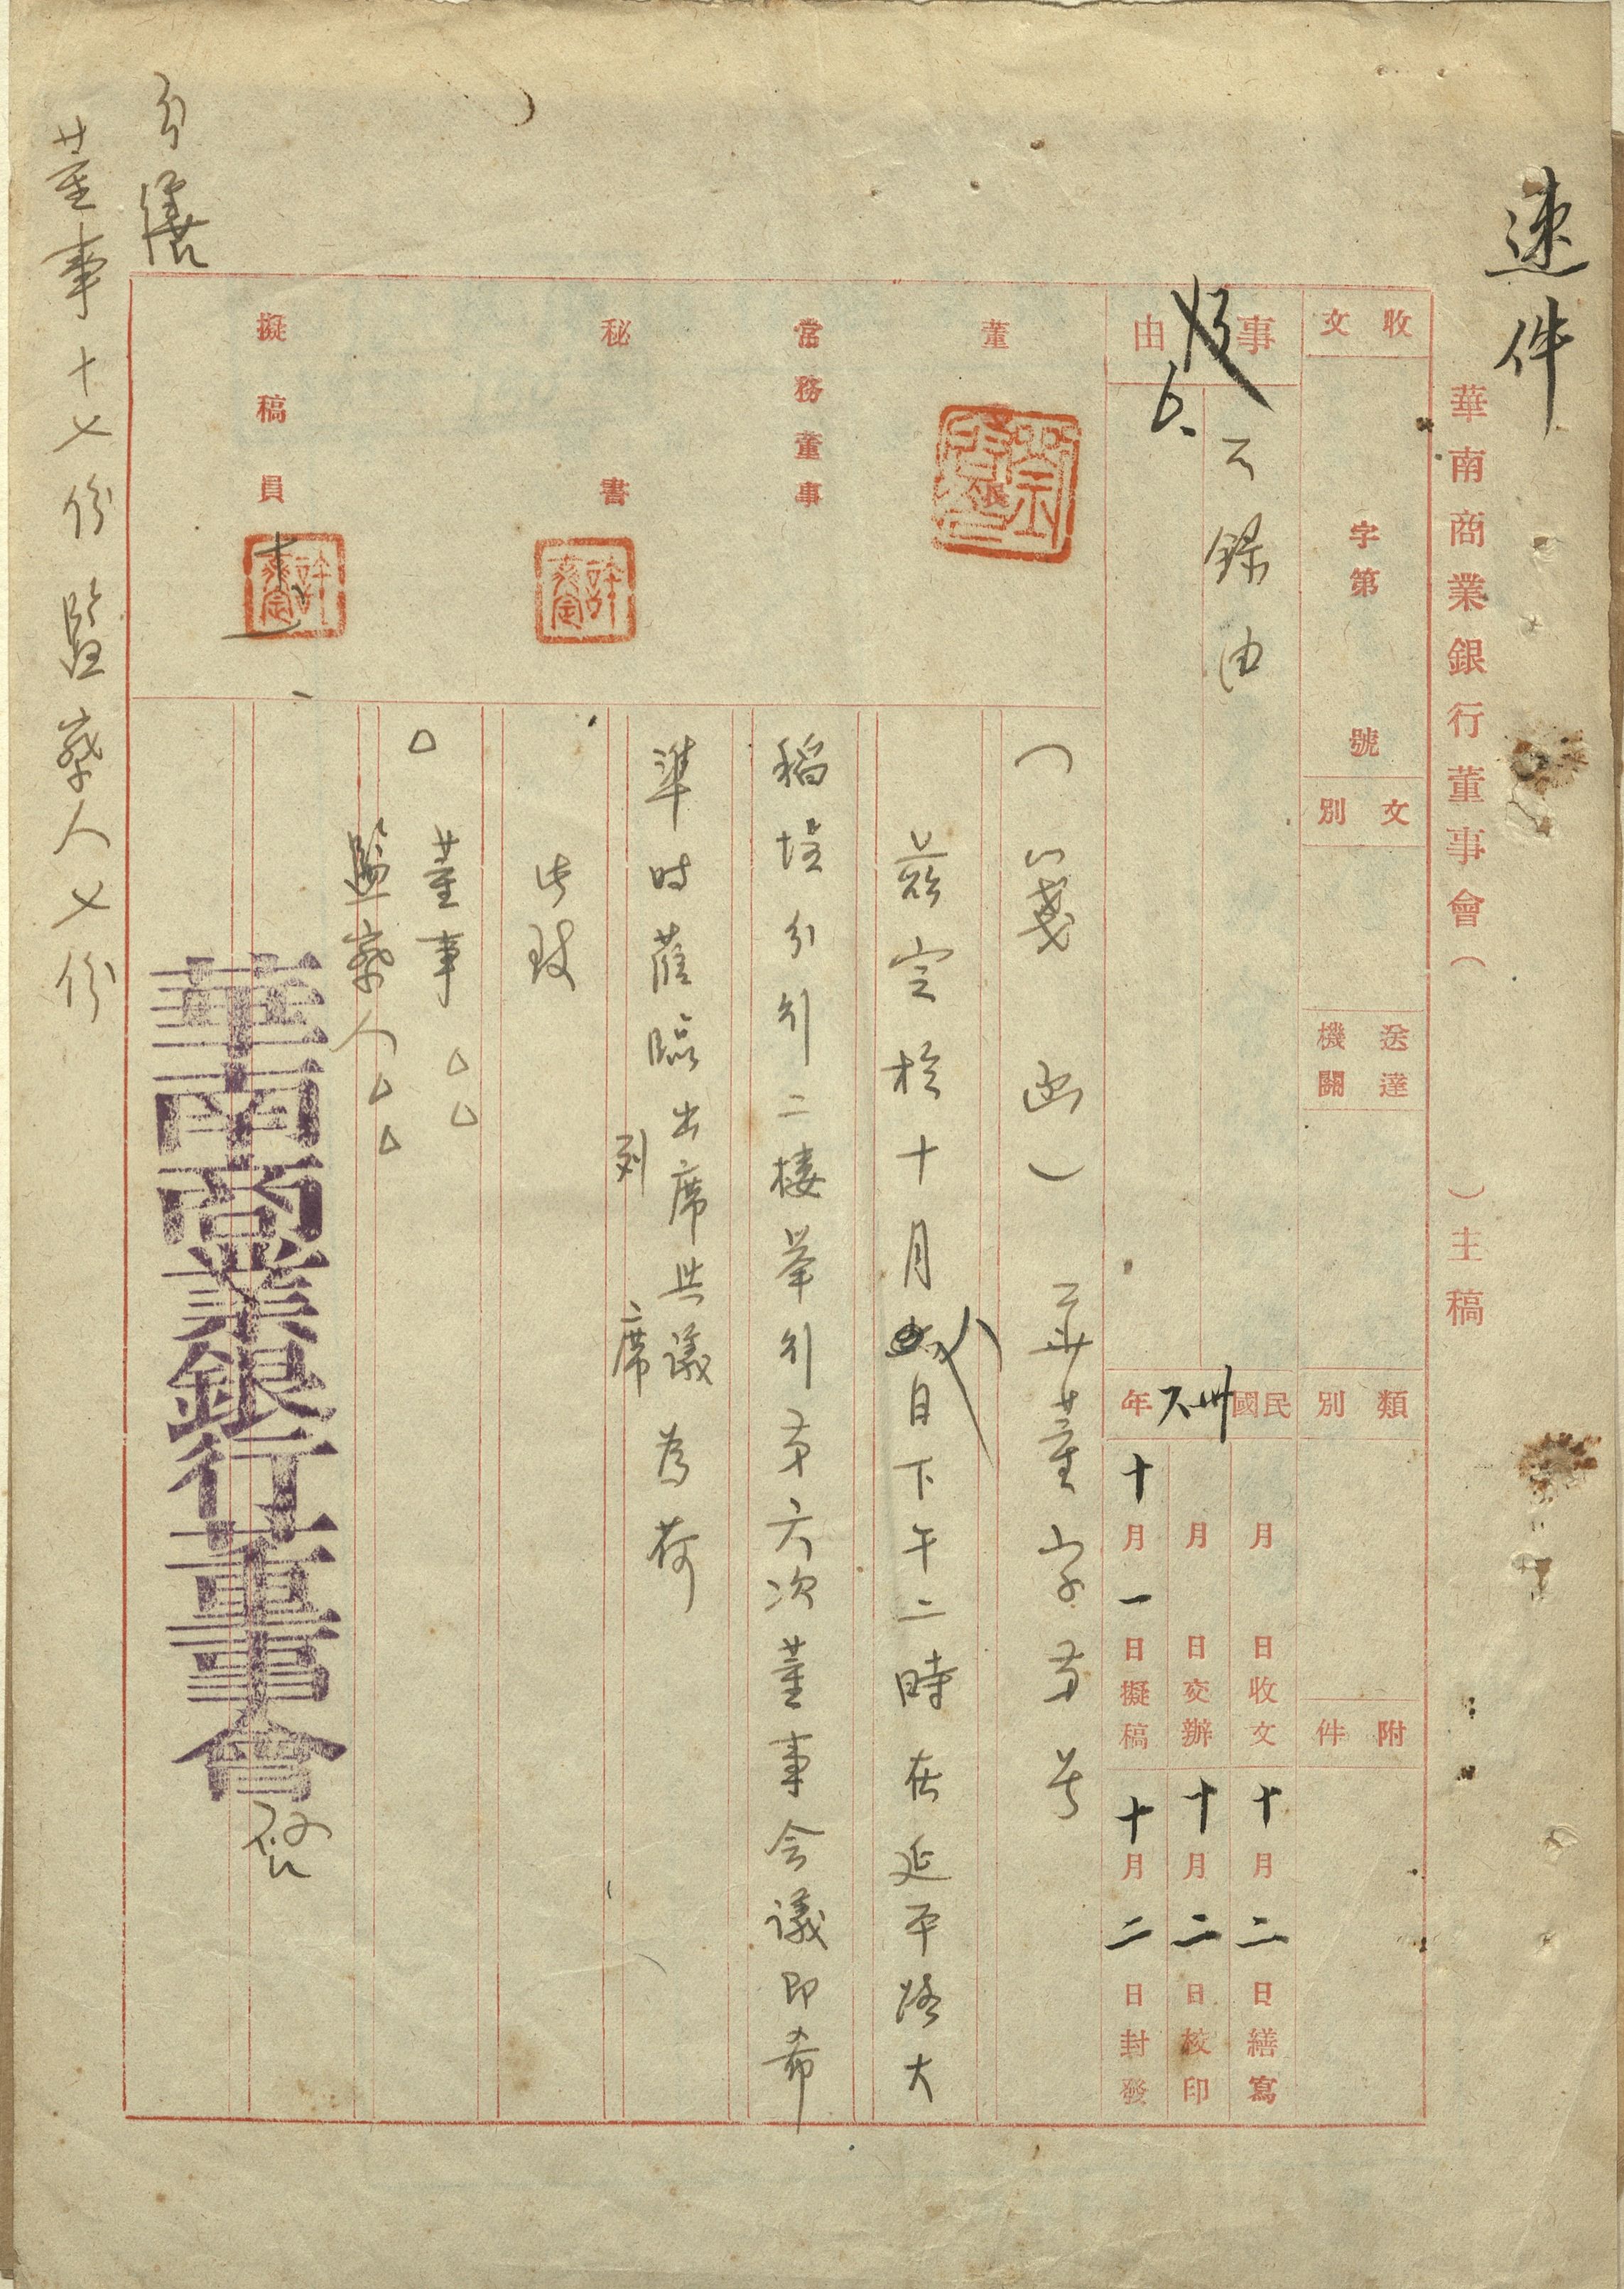 速件
華南商業銀行董事會（　）主稿
收文
字第　號
文別
送達機關
類別
附件
事由
不錄由
民國卅六年
月　日收文
月　日交辦
十月一日擬稿
十月二日繕寫
十月二日校印
十月二日封發
董
常務董事
秘書
擬稿員
（箋函）　華董字第　号
茲定於十月八日下午二時在延平路大
稻埕分行二樓舉行第六次董事会議即希
準時蒞臨出席共議為荷
列席
此致
董事△△
監察人△△
華南商業銀行董事會啓
分繕
董事十七份監察人七份